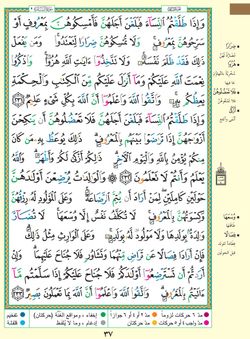 وَإِذَا طَلَّقْتُمُ ٱلنِّسَآءَ فَبَلَغْنَ أَجَلَهُنَّ فَأَمْسِكُوهُنَّ بِمَعْرُوفٍ أَوْ
سَرِّحُوهُنَّ بِمَعْرُوفٍ وَلَا تُمْسِكُوهُنَّ ضِرَارًا لِّتَعْتَدُوا۟ وَمَن يَفْعَلْ
ذَٰلِكَ فَقَدْ ظَلَمَ نَفْسَهُۥ وَلَا تَتَّخِذُوٓا۟ ءَايَٰتِ ٱللَّهِ هُزُوًا وَٱذْكُرُوا۟
نِعْمَتَ ٱللَّهِ عَلَيْكُمْ وَمَآ أَنزَلَ عَلَيْكُم مِّنَ ٱلْكِتَٰبِ وَٱلْحِكْمَةِ
يَعِظُكُم بِهِۦ وَٱتَّقُوا۟ ٱللَّهَ وَٱعْلَمُوٓا۟ أَنَّ ٱللَّهَ بِكُلِّ شَىْءٍ عَلِيمٌ ٢٣١
وَإِذَا طَلَّقْتُمُ ٱلنِّسَآءَ فَبَلَغْنَ أَجَلَهُنَّ فَلَا تَعْضُلُوهُنَّ أَن يَنكِحْنَ
أَزْوَٰجَهُنَّ إِذَا تَرَٰضَوْا۟ بَيْنَهُم بِٱلْمَعْرُوفِ ذَٰلِكَ يُوعَظُ بِهِۦ مَن كَانَ
مِنكُمْ يُؤْمِنُ بِٱللَّهِ وَٱلْيَوْمِ ٱلْءَاخِرِ ذَٰلِكُمْ أَزْكَىٰ لَكُمْ وَأَطْهَرُ وَٱللَّهُ
يَعْلَمُ وَأَنتُمْ لَا تَعْلَمُونَ ٢٣٢ وَٱلْوَٰلِدَٰتُ يُرْضِعْنَ أَوْلَٰدَهُنَّ
حَوْلَيْنِ كَامِلَيْنِ لِمَنْ أَرَادَ أَن يُتِمَّ ٱلرَّضَاعَةَ وَعَلَى ٱلْمَوْلُودِ لَهُۥ رِزْقُهُنَّ
وَكِسْوَتُهُنَّ بِٱلْمَعْرُوفِ لَا تُكَلَّفُ نَفْسٌ إِلَّا وُسْعَهَا لَا تُضَآرَّ
وَٰلِدَةٌۢ بِوَلَدِهَا وَلَا مَوْلُودٌ لَّهُۥ بِوَلَدِهِۦ وَعَلَى ٱلْوَارِثِ مِثْلُ ذَٰلِكَ
فَإِنْ أَرَادَا فِصَالًا عَن تَرَاضٍ مِّنْهُمَا وَتَشَاوُرٍ فَلَا جُنَاحَ عَلَيْهِمَا
وَإِنْ أَرَدتُّمْ أَن تَسْتَرْضِعُوٓا۟ أَوْلَٰدَكُمْ فَلَا جُنَاحَ عَلَيْكُمْ إِذَا سَلَّمْتُم مَّآ
ءَاتَيْتُم بِٱلْمَعْرُوفِ وَٱتَّقُوا۟ ٱللَّهَ وَٱعْلَمُوٓا۟ أَنَّ ٱللَّهَ بِمَا تَعْمَلُونَ بَصِيرٌ ٢٣٣
ضِرَارًا
هُزُوًا
فَلَا تَعْضُلُوهُنَّ
وُسْعَهَا
فِصَالًا
٣٧